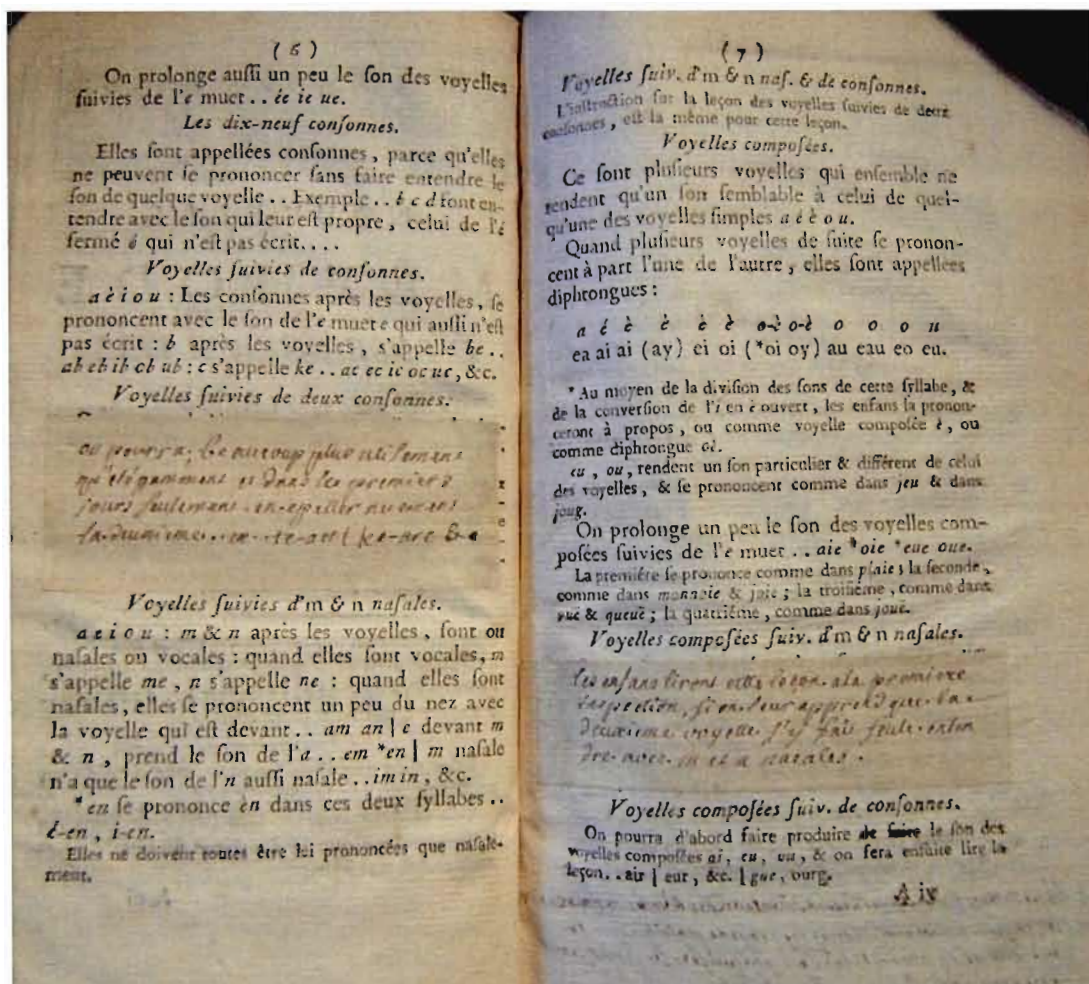 ( 6 )
On prolonge auſſi un peu le ſon des voyelles
ſuivies de l'e muet . . ée ie ue.
Les dix-neuf conſonnes.
Elles ſont appellées conſonnes, parce qu'elles
ne peuvent ſe prononcer ſans faire entendre le
ſon de quelque voyelle . . Exemple . . b c d font en-
tendre avec le ſon qui leur eſt propre, celui de l'é
fermé é qui n'eſt pas écrit. . . .
Voyelles ſuivies de conſonnes.
a è i o u : Les conſonnes après les voyelles, ſe
prononcent avec le ſon de l'e muet e qui auſſi n'eſt
pas écrit : b après les voyelles, s'appelle be . .
ab eb ib ob ub : c s'appelle ke . . ac ec ic oc uc, &c.
Voyelles ſuivies de deux conſonnes.
on pourra, beaucoup plus utilement
qu'élégamment et dans les premiers
jours ſeulement en appeller
la deuxieme
Voyelles ſuivies d'm & n naſales.
a e i o u : m & n après les voyelles, ſont ou
naſales ou vocales : quand elles ſont vocales, m
s'appelle me, n s'appelle ne : quand elles ſont
naſales, elles ſe prononcent un peu du nez avec
la voyelle qui eſt devant . . am an | e devant m
& n, prend le ſon de l'a . . em *en | m naſale
n'a que le ſon de l'n auſſi naſale . . im in, &c.
*en ſe prononce èn dans ces deux ſyllabes . .
é-en, i-en.
Elles ne doivent toutes être ici prononcées que naſale-
ment.
( 7 )
Voyelles ſuiv. d'm & n naſ. & de conſonnes.
L'inſtruction ſur la leçon des voyelles ſuivies de deux
conſonnes, eſt la même pour cette leçon.
Voyelles compoſées.
Ce ſont pluſieurs voyelles qui enſemble ne
rendent qu'un ſon ſemblable à celui de quel-
qu'une des voyelles ſimples a é è o u.
Quand pluſieurs voyelles de ſuite ſe pronon-
cent à part l'une de l'autre, elles ſont appellées
diphtongues :
a é è è è è o-è o-è o o o u
ea ai ai (ay) ei oi (*oi oy) au eau eo eu.
* Au moyen de la diviſion des ſons de cette ſyllabe, &
de la converſion de l'i en è ouvert, les enfans la pronon-
ceront à propos, ou comme voyelle compoſée è, ou
comme diphtongue oè.
eu, ou, rendent un ſon particulier & différent de celui
des voyelles, & ſe prononcent comme dans jeu & dans
joug.
On prolonge un peu le ſon des voyelles com-
poſées ſuivies de l'e muet . . aie *oie *eue oue.
La première ſe prononce comme dans plaie ; la ſeconde,
comme dans monnoie & joie ; la troiſième, comme dans
vue & queue ; la quatrième, comme dans joue.
Voyelles compoſées ſuiv. d'm & n naſales.
les enfans liront cette leçon a la premiere
inſpection, ſi on leur apprend que la
deuxieme voyelle ſe fait ſeule enten
dre avec m et n naſales.
Voyelles compoſées ſuiv. de conſonnes.
On pourra d'abord faire produire de faire le ſon des
voyelles compoſées ai, eu, ou, & on ſera enſuite lire la
leçon. . air | eur, &c. | gue, ourg.
A iv